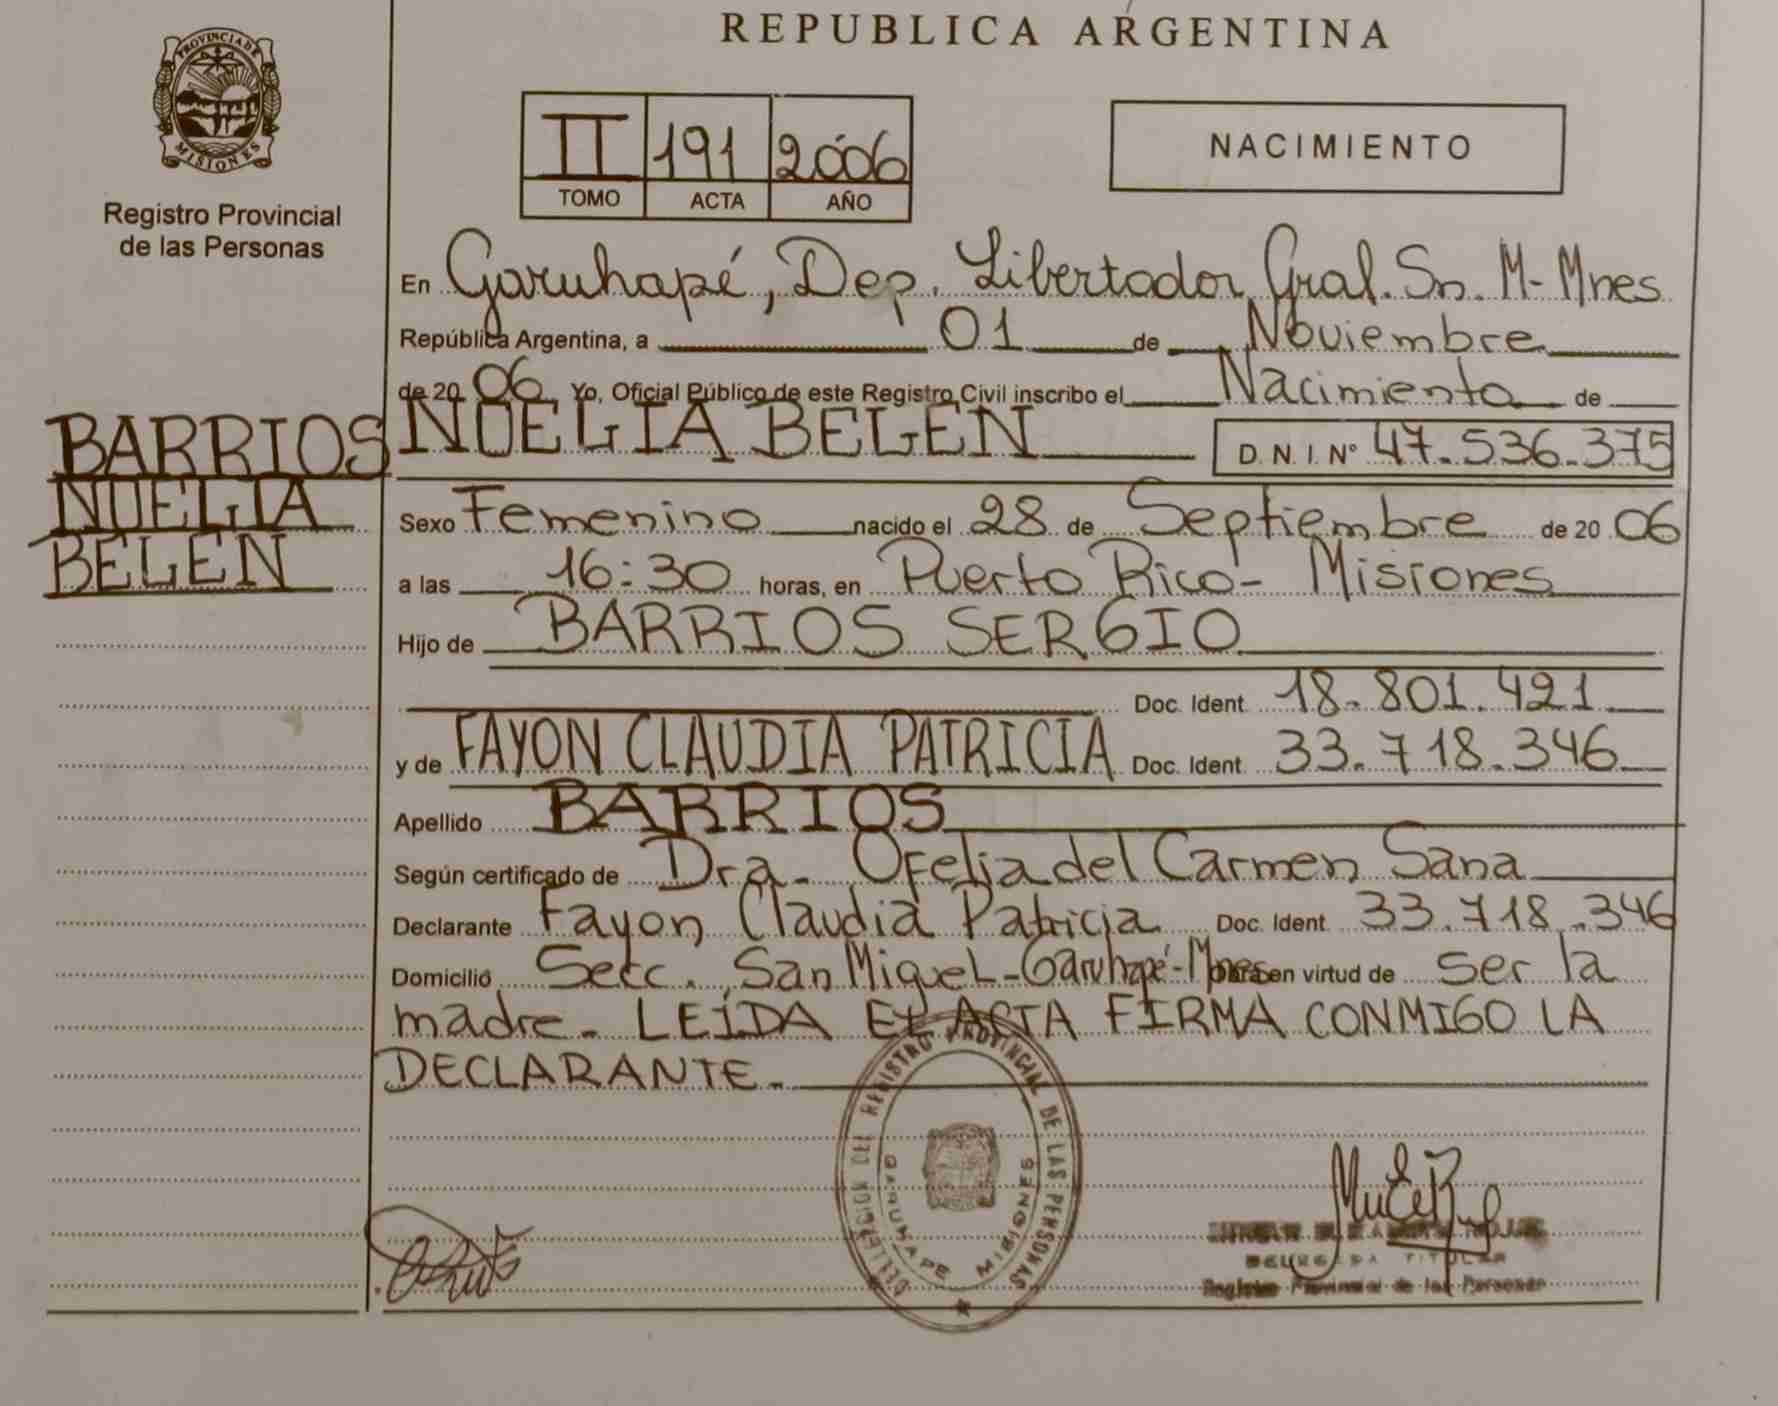 REPUBLICA ARGENTINA
PROVINCIA DE
MISIONES
Registro Provincial
de las Personas
II 191 2006
TOMO ACTA AÑO
NACIMIENTO
En Garuhapé, Dep. Libertador Gral. Sn. M- Mnes
República Argentina, a 01 de Noviembre
de 20 06 Yo, Oficial Público de este Registro Civil inscribo el Nacimiento de
BARRIOS
NOELIA
BELEN
NOELIA BELEN D.N.I. Nº 47.536.375
Sexo Femenino nacido el 28 de Septiembre de 20 06
a las 16:30 horas, en Puerto Rico- Misiones
Hijo de BARRIOS SERGIO
Doc. Ident. 18.801.421
y de FAYON CLAUDIA PATRICIA Doc. Ident. 33.718.346
Apellido BARRIOS
Según certificado de Dra. Ofelia del Carmen Sana
Declarante Fayon Claudia Patricia Doc. Ident. 33.718.346
Domicilio Secc. San Miguel-Garuhapé-Mnes obra en virtud de ser la
madre. LEÍDA EL ACTA FIRMA CONMIGO LA
DECLARANTE.
DELEGACION DEL REGISTRO PROVINCIAL DE LAS PERSONAS
GARUHAPE MISIONES
TITULAR
Registro Provincial de las Personas